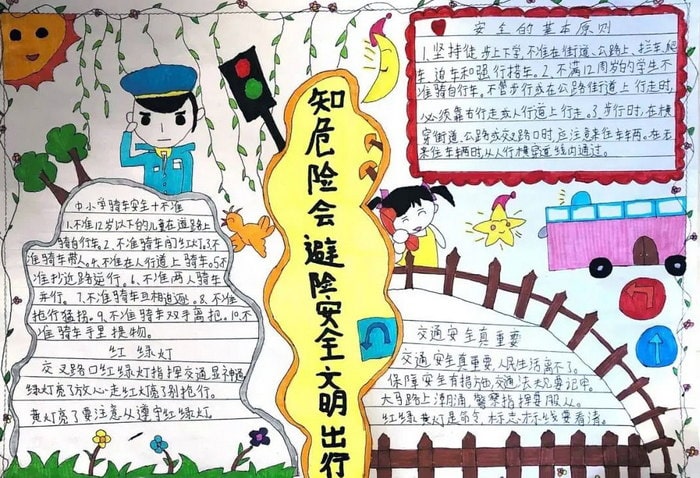 知危险会避险安全文明出行
安全的基本原则
1.坚持徒步上下学,不准在街道、公路上、拦车爬
车、追车和强行搭车。2.不满12周岁的学生不
准骑自行车,不管步行或在公路街道上行走时,
必须靠右行走或人行道上行走。3.步行时,在横
穿街道、公路或叉路口时,应注意来往车辆。在无
来往车辆时,从人行横穿道线内通过。
中小学骑车安全十不准
1.不准12岁以下的儿童在道路上
骑自行车。2.不准骑车闯红灯。3.不
准骑车带人。4.不准在人行道上骑车。5.不
准抄近路逆行。6.不准两人骑车
车行。7.不准骑车互相追逐。8.不准
抢行猛拐。9.不准骑车双手离把。10.不
准骑车手里提物。
红绿灯
交叉路口红绿灯指挥交通显神通
绿灯亮了放心走红灯亮了别抢行。
黄灯亮了要注意从遵守红绿灯
交通安全真重要
交通安全真重要,人民生活离不了。
保障安全有措施,交通法规忘记牢。
大马路上潮涌,警察指挥要服从。
红绿黄灯是命令,标志标线要看清。